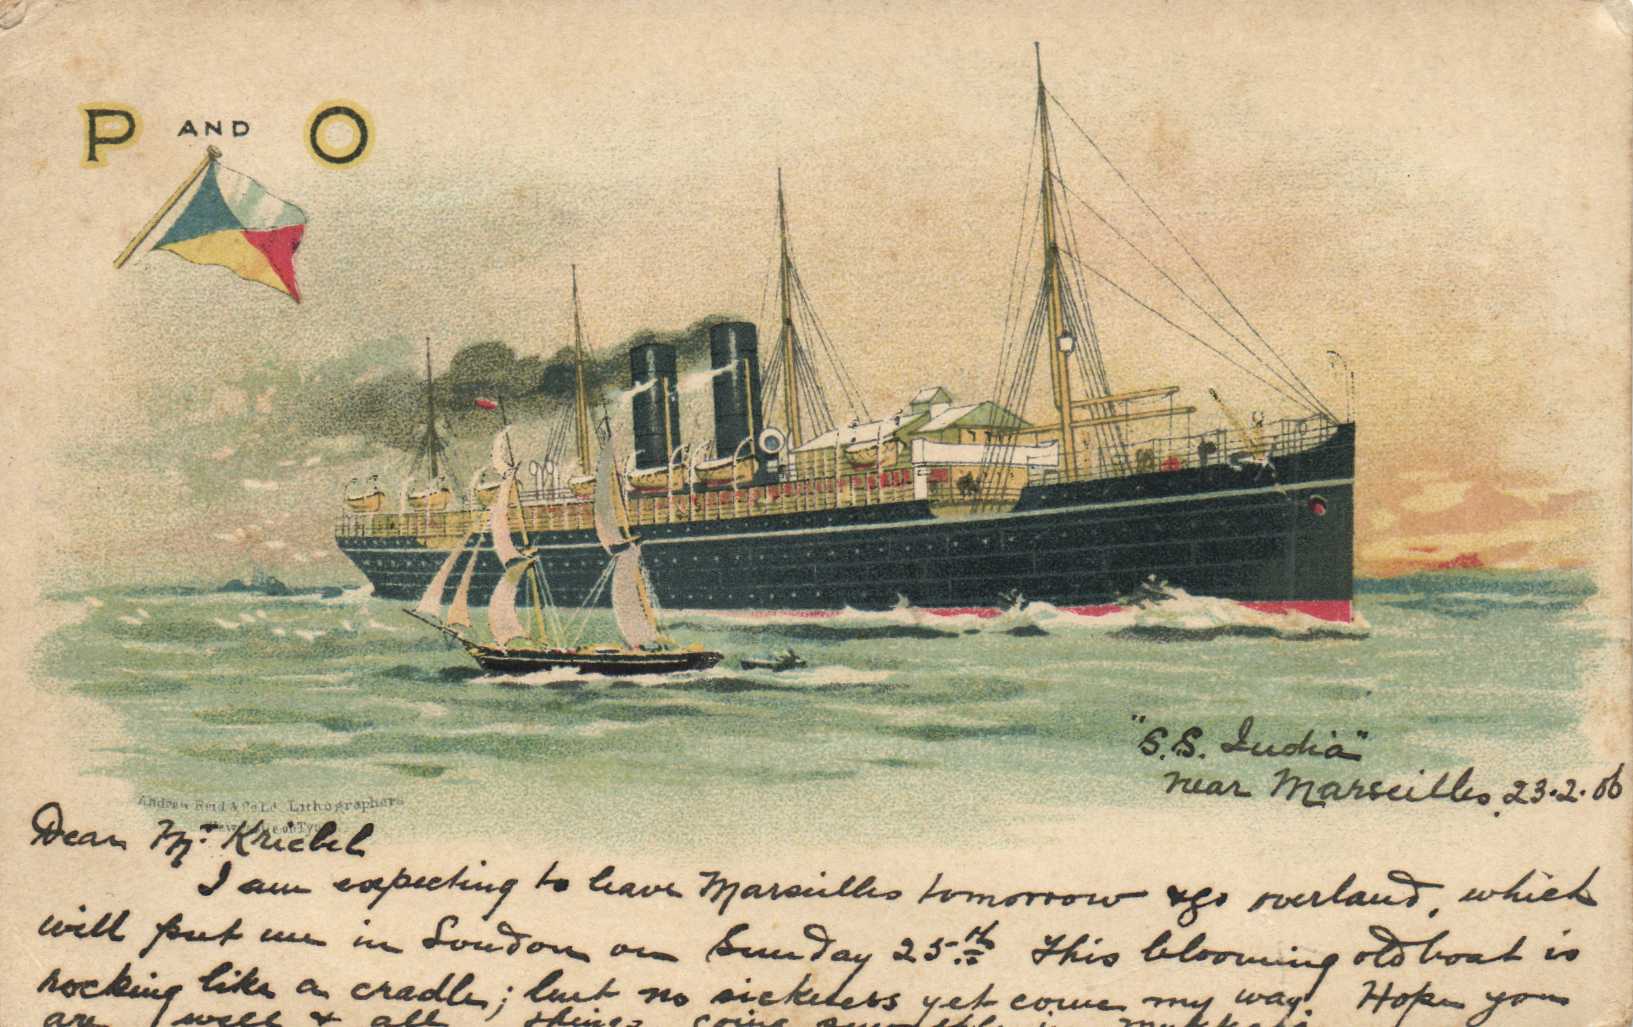 P AND O
"S.S. India"
near Marseilles, 23.2.06
Andrew Reid & Co Ld. Lithographers
Dear Mr Kriebel
I am expecting to leave Marseilles tomorrow & go overland, which
will put me in London on Sunday 25th. This blooming old boat is
rocking like a cradle; but no sickness yet come my way. Hope you
are well & all things going smoothly in